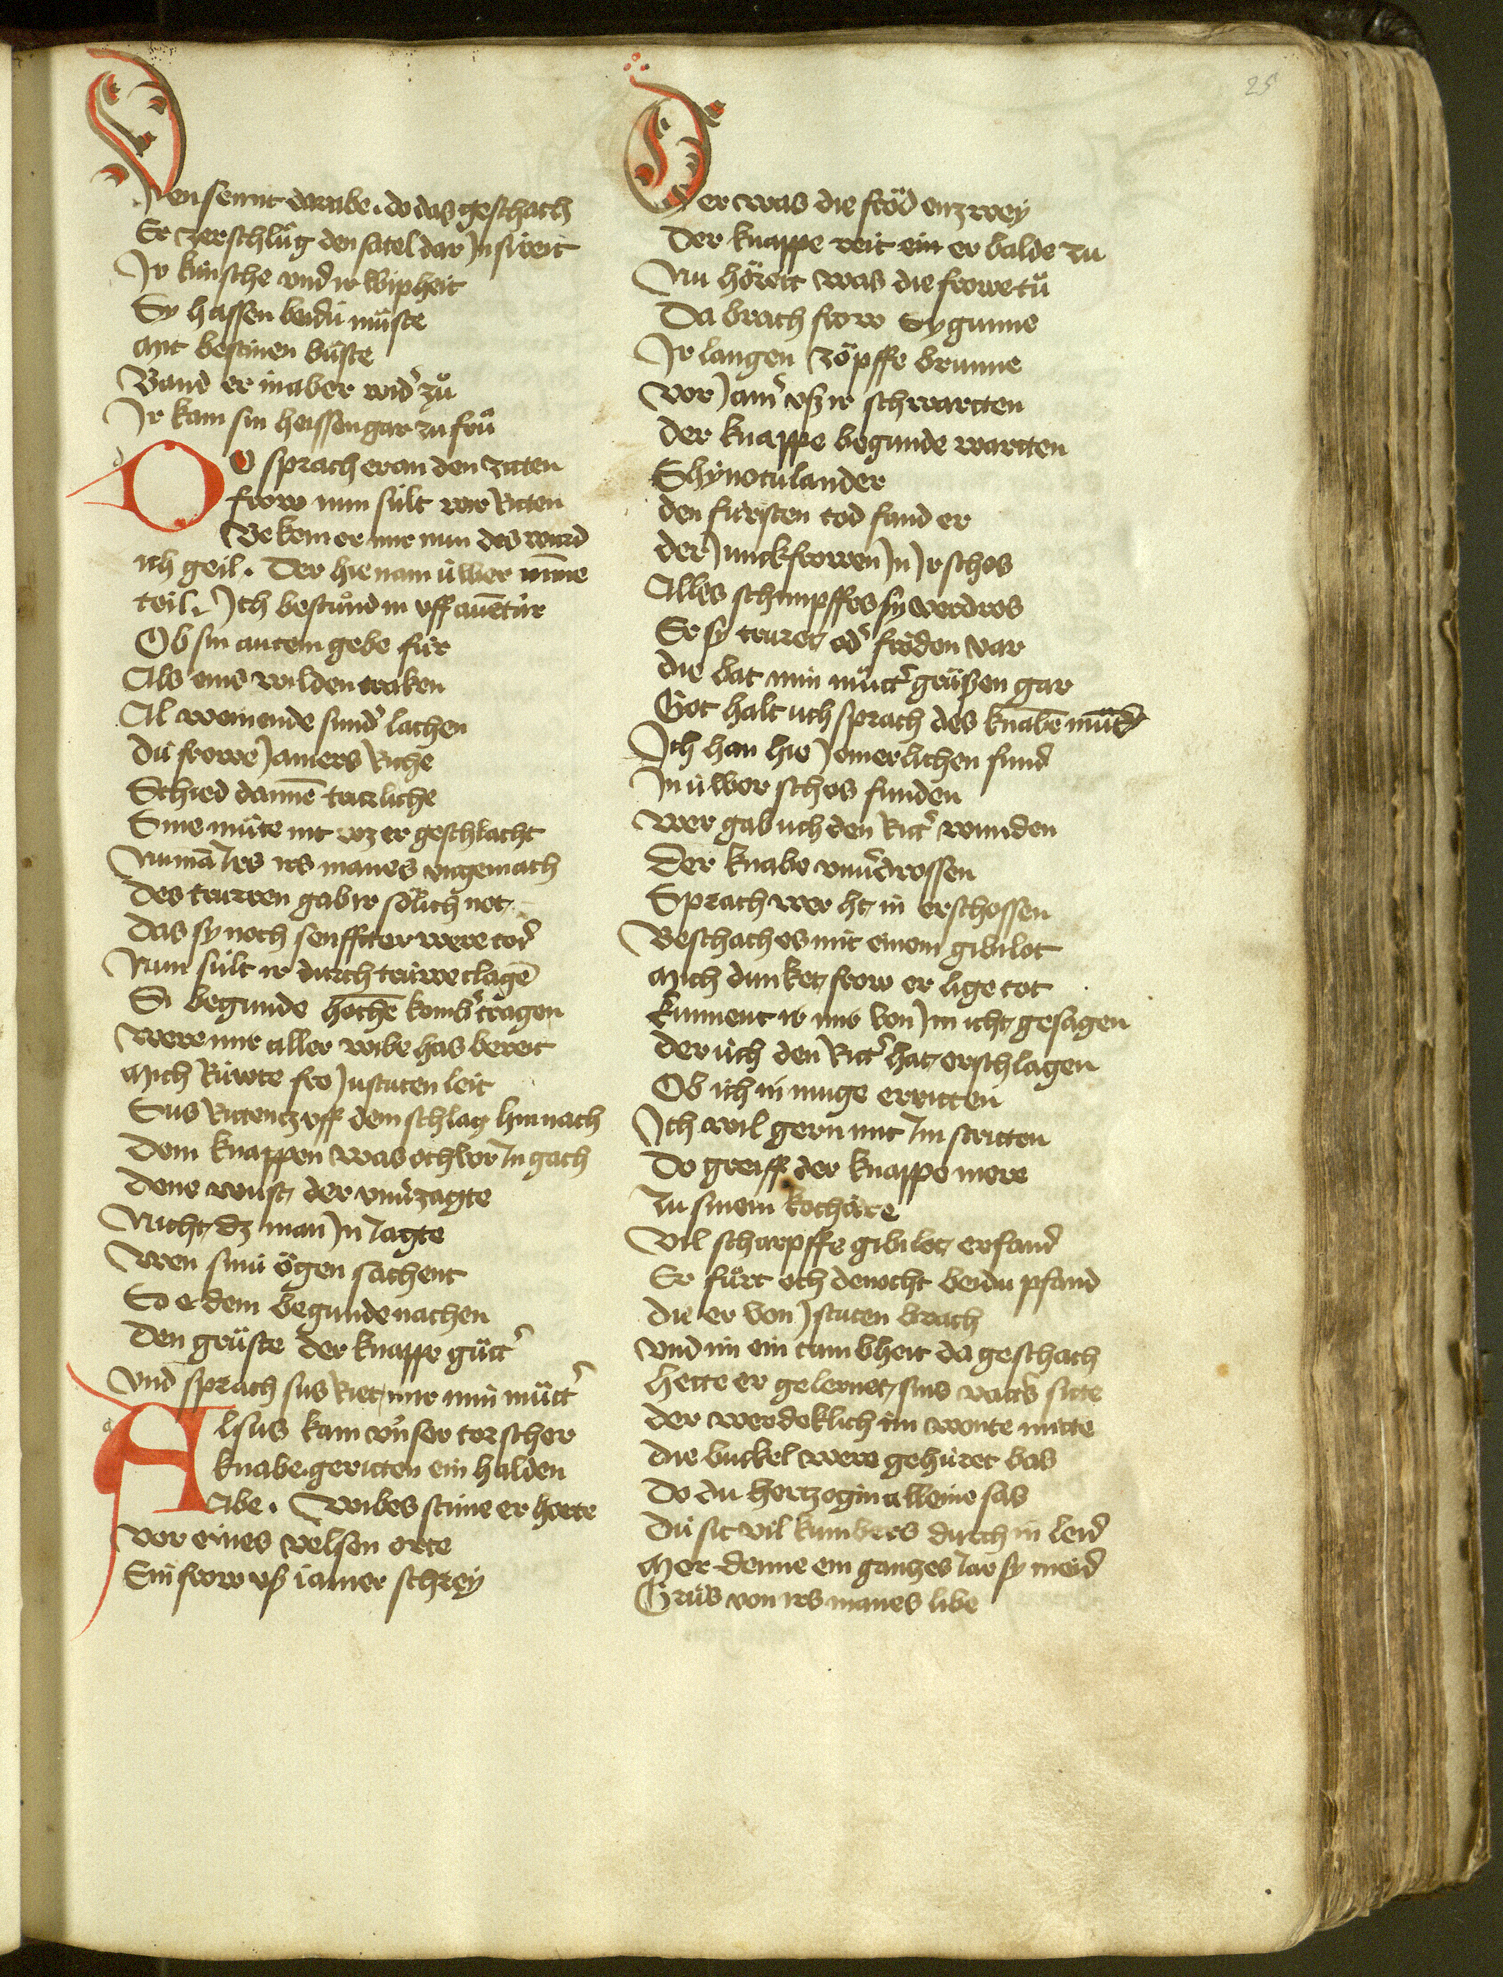 25
Jen sennt darabe. do das geschach
Er zerschlůg den satel dar Jn si reit
Jr kúnsche vnd ir wipheit
Sy hassen beidú můste
Mit bestinen búste
Band er in aber wid' zů
Jr kam sin heissen gar zu frů
DO sprach er an den ziten
frow nun súlt wir Ritten
Bekem er mir nun des wurd
ich geil. Der hie nam úwer minne
teil. Jch bestůnd in vff auentúr
Ob sin autem gebe fúr
Als eins wilden traken
Al weinende sund' lachen
Dú frowe Jamers Riche
Schied dannē trurliche
Sine můte nit wz er geschlacht
Numā Jrs irs manes vngemach
Des truwen gab ir sölich not
Das sy noch senffter were tod
Nun súlt ir durch trúwe clagē
Si begunde hochē komb' tragen
Were mir aller wibe has bereit
Mich Rúwte fro Justuten leit
Sus Rittentz vff dem schlag hin nach
Dem knappen was och vor Jn gach
Dene wust der vnu'zagte
Nicht dz man Jn Jagte
Wen sinú ögen sachent
So er dem begunde nachen
Den grůste der knappe gůtt'
Vnd sprach sus Riet mir min můtt'
Alsus kam vnser torscher
knabe. geritten ein halden
Abe. Wibes stime er horte
Vor eines velsen orte
Ein frow vß iamer schrey
Der was die fröd enzwey
Der knappe reit ein er balde zu
Nu hörett was die frowe tů
Da brach frow Sygunne
Jr langen zöpffe brunne
Vor Jam' vß ir schwartten
Der knappe begunde wartten
Schynotulander
den fúrsten tod fand er
der Junckfrowen Jn Jr schos
Alles schimpffes sy verdros
Er sy truret od' fröden var
die bat min můtt' grůßen gar
Got halt uch sprach des knabē můt'
Jch han hie Jemerlichen fund
Jn úwer schos funden
Wer gab uch den Ritt' wunden
Der knabe vnu'drossen
Sprach wer ht in erschossen
Beschach es mit einem gibilot
Mich dunket frow er lige tot
kunnent ir mir von Jm icht gesagen
der úch den Ritt' hat erschlagen
Ob ich in muge erritten
Jch wil gern mit Jm stritten
Do greiff der knappe mere
Zu sinem kochäre
Vil scharpffe gibilot erfand
Er fůrt och dennocht beidu pfand
die er von Jstuten brach
Vnd im ein tumbheit da geschach
hette er gelernet sins vatt's sitte
der werdeklich im wonte mitte
die buckel were gehúret bas
Do du hertzogin alleine sas
Dú sit vil kumbers durch in leid
Mer denne ein gantzes Jar sy meid
Grůs von irs manes libe